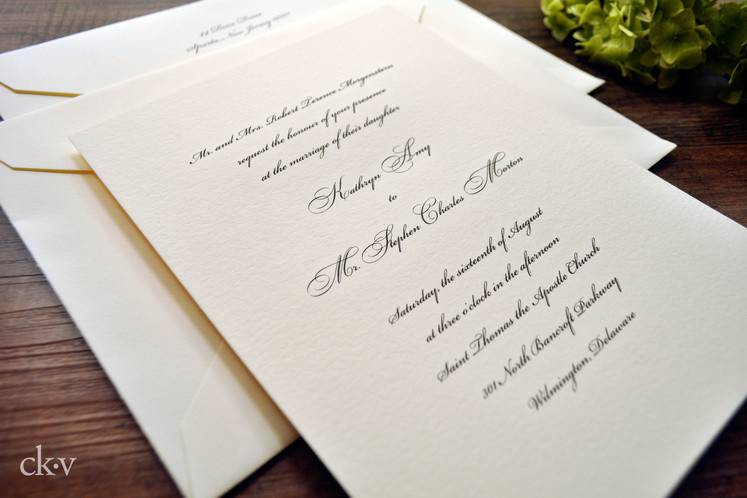 Sparta, New Jersey
Mr. and Mrs. Robert Terence Morgenstern
request the honour of your presence
at the marriage of their daughter
Kathryn Amy
to
Mr. Stephen Charles Morton
Saturday, the sixteenth of August
at three o'clock in the afternoon
Saint Thomas the Apostle Church
301 North Bancroft Parkway
Wilmington, Delaware
ck·v